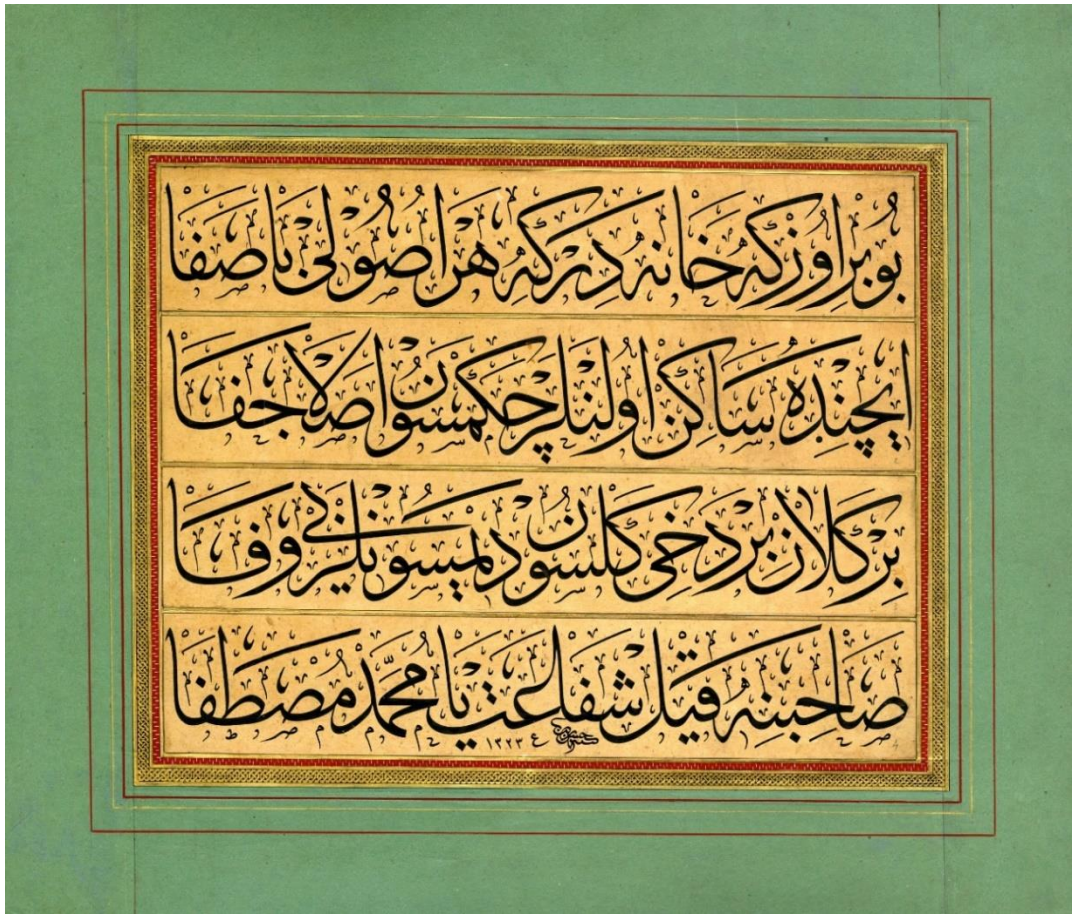 بو بر اوزكه خانه در كه هر اصولی باصفا
ایچنده ساكن اولنلر چكمسون اصلا جفا
بر كلان بر دخی كلسون دیمیسونلر بی وفا
صاحبنه قیل شفاعت یا محمد مصطفا
١٣٢٣